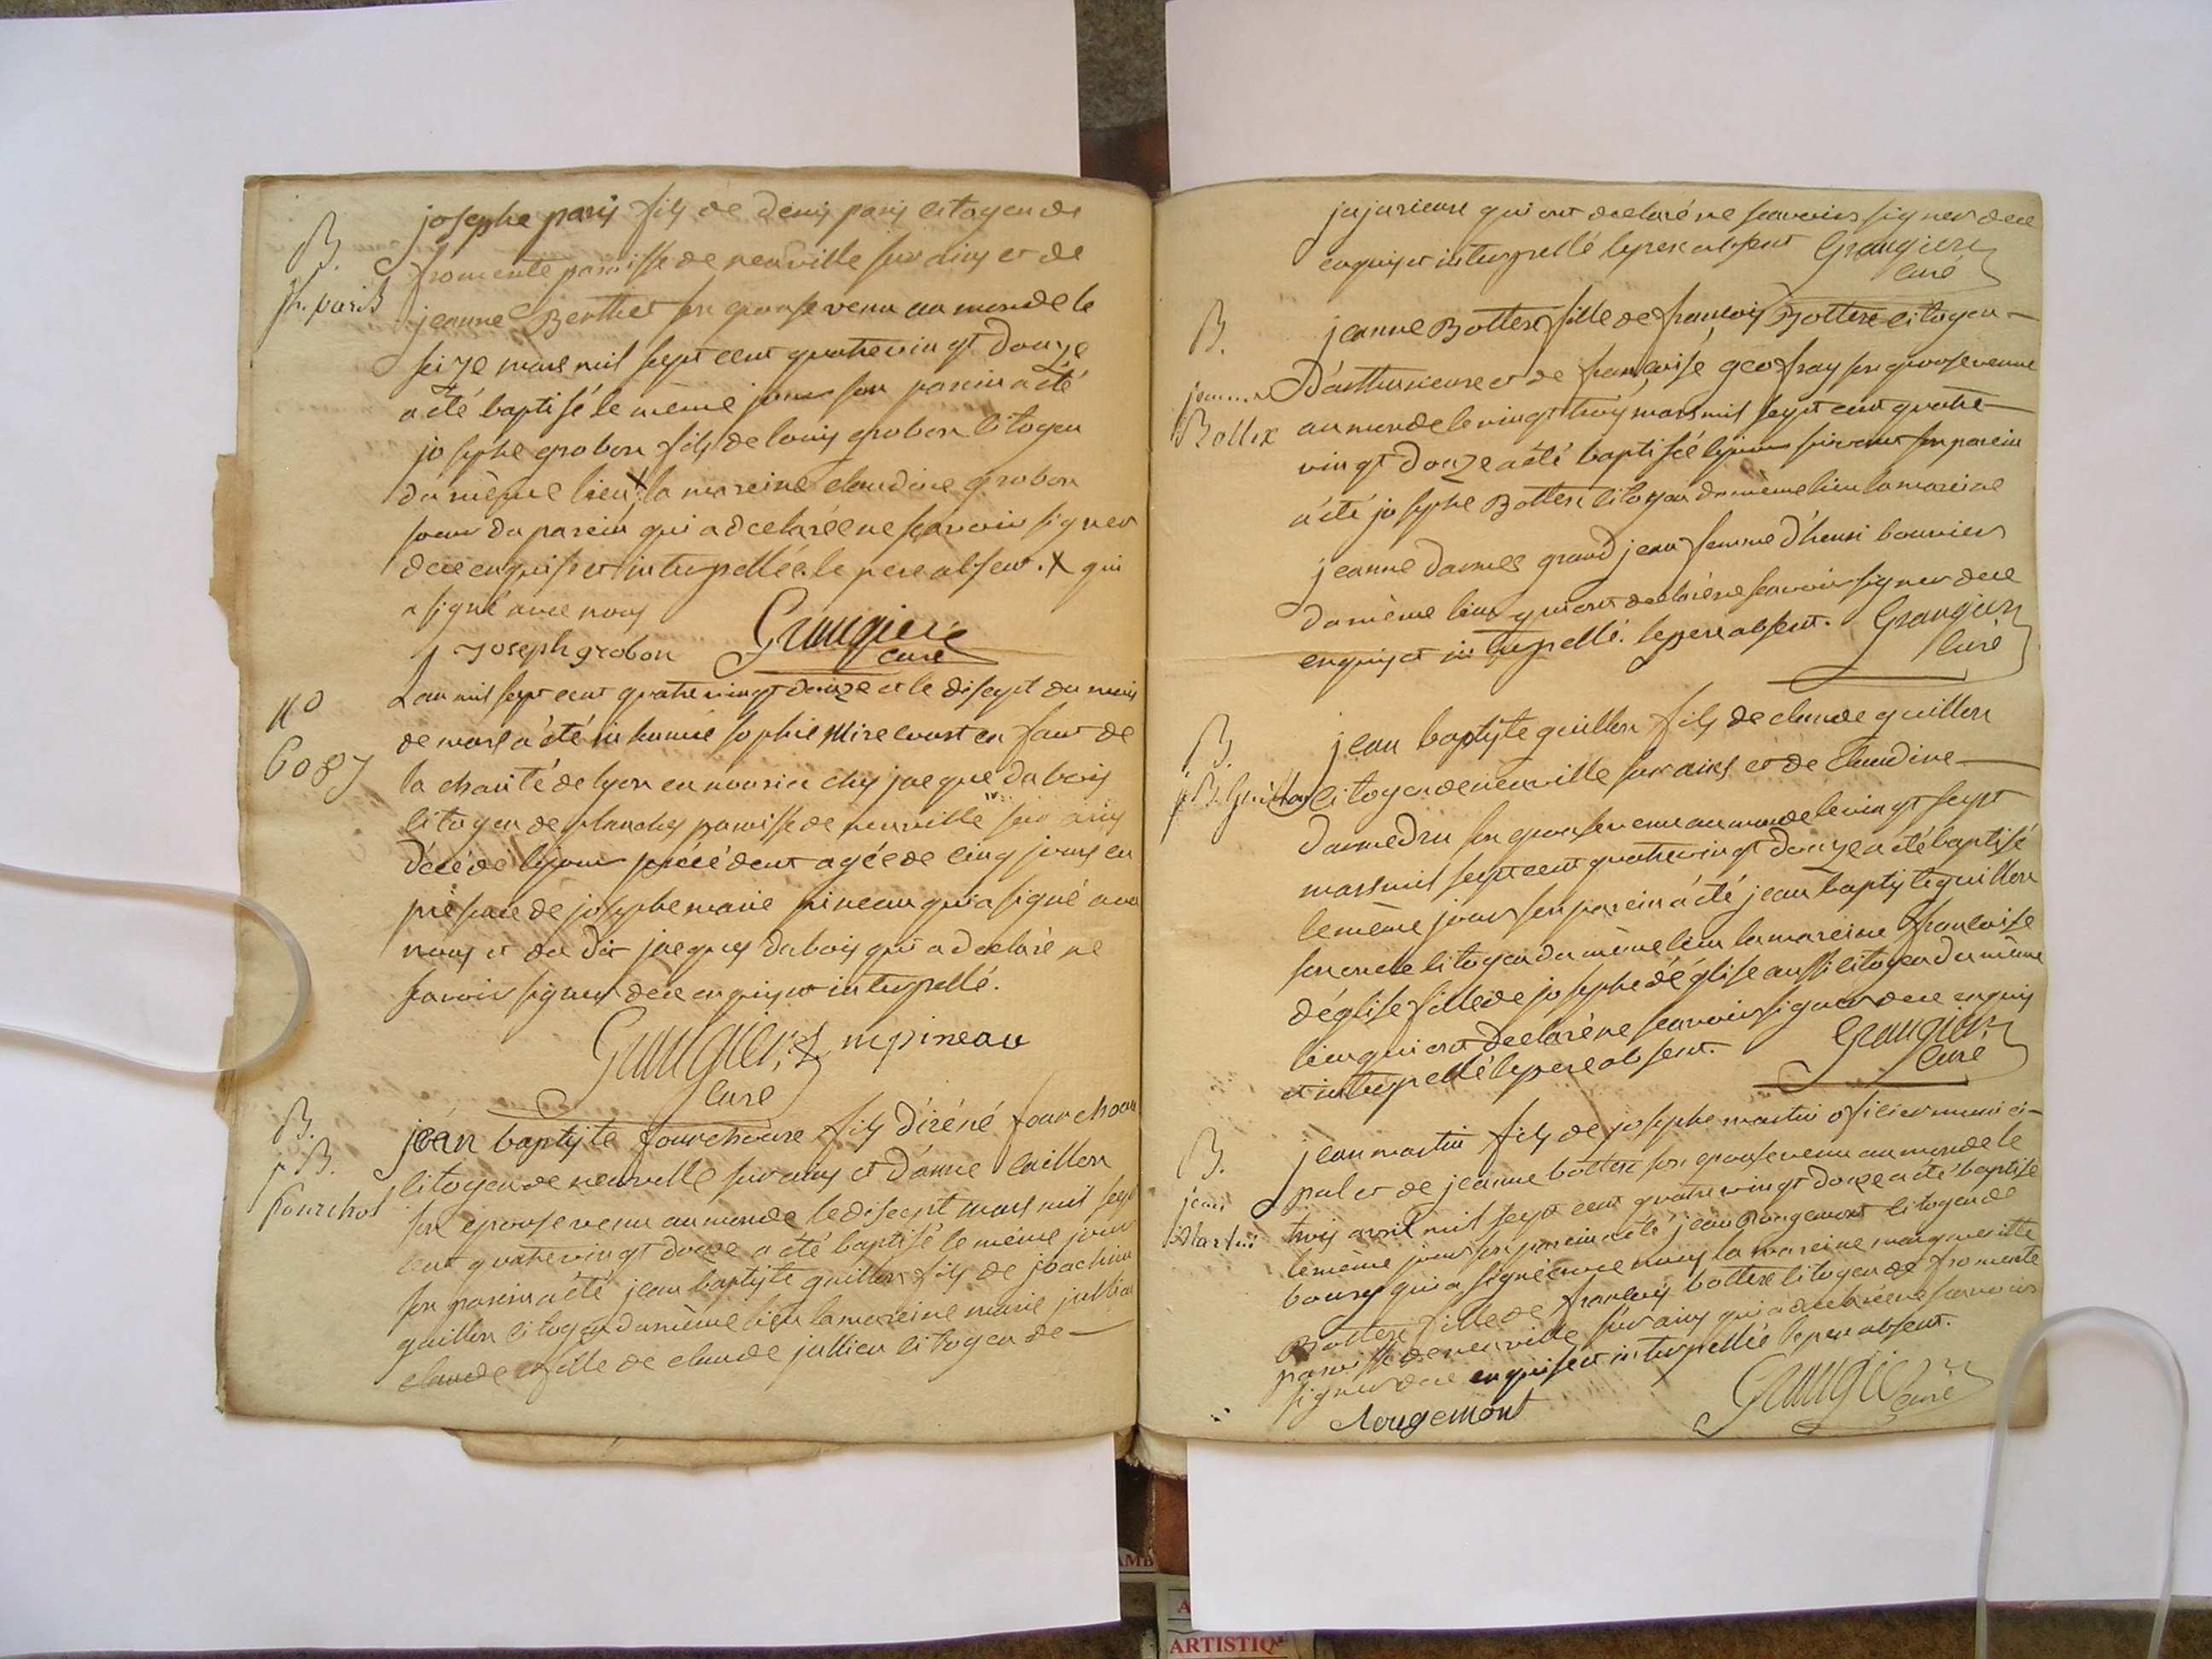 B.
jh. paris
josephe paris fils de denis paris citoyen de
fromente paroisse de neuville sur ains et de
jeanne Berthet son epouse venu au monde le
seize mars mil sept cent quatrevingt douze
a été baptisé le même jour son parein a été
josephe grobon fils de louis grobon citoyen
du même lieu X la mareine claudine grobon
soeur du parein qui a declaréene sçavoir signer
de ce enquise et interpellée. le pere absent. X qui
a signé avec nous
Joseph grobon Grangier curé
n°
6087
L'an mil sept cent quatrevingt douze et le disept du mois
de mars a été inhumé sophie Mirecourt enfant de
la charité de lyon en nourice chés jacque dubois
citoyen de planches paroisse de neuville sur ains
décédé le jour précédent agée de cinq jours en
présence de josephe marie pineau qui a signé avec
nous et du dit jacques dubois qui a declaré ne
savoir signer de ce enquis et interpellé.
Grangier, mpineau
curé
B.
j B.
fourchot
jean baptiste fourchoure fils d'iréné fourchour
citoyen de neuville sur ains et d'anne caillon
son epouse venu au monde le disept mars mil sept
cent quatrevingt douze a été baptisé le même jour
son parein a été jean baptiste guillon fils de joachim
guillon citoyen du même lieu la mareine marie jullien
claude fille de claude jullien citoyen de
jujurieux qui ont declaré ne sçavoir signer de ce
enquis et interpellé le pere absent Grangier
curé
B.
jeanne
Bottex
jeanne Bottex fille de françois Bottex citoyen
et de françoise geofray son epouse venue
au monde le vingt trois mars mil sept cent quatre
vingt douze a été baptisée le jour suivant son parein
a été josephe Bottex citoyen du même lieu la mareine
jeanne grand jean femme d'henri bouvier
du même lieu qui ont declaré ne sçavoir signer de ce
enquis et interpellé. le pere absent. Grangier
curé
B.
jB. Guillon
jean baptiste guillon fils de claude guillon
citoyen de neuville sur ains et de Claudine
son epouse venu au monde le vingt sept
mars mil sept cent quatrevingt douze a été baptisé
le même jour son parein a été jean baptiste guillon
son oncle citoyen du même lieu la mareine françoise
déglise fille de josephe déglise aussi citoyen du même
lieu qui ont declaré ne sçavoir signer de ce enquis
et interpellé le pere absent. Grangier
curé
B.
jean
Martin
jean martin fils de josephe martin oficier munici-
pal et de jeanne bottex son epouse venu au monde le
trois avril mil sept cent quatre vingt douze a été baptisé
le même jour son parein a été jean Rougemont citoyen de
bourg qui a signé avec nous la mareine marguerite
Bottex fille de françois bottex citoyen de fromente
paroisse de neuville sur ains qui a declaréene sçavoir
signer de ce enquise et interpellée le pere absent.
Rougemont Grangier curé
ARTISTIQ